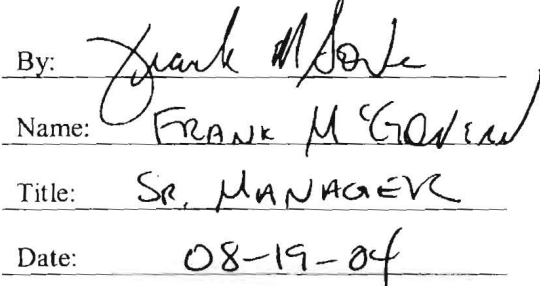 By: Frank McGovern
Name: FRANK McGOVERN
Title: SR. MANAGER
Date: 08-19-04